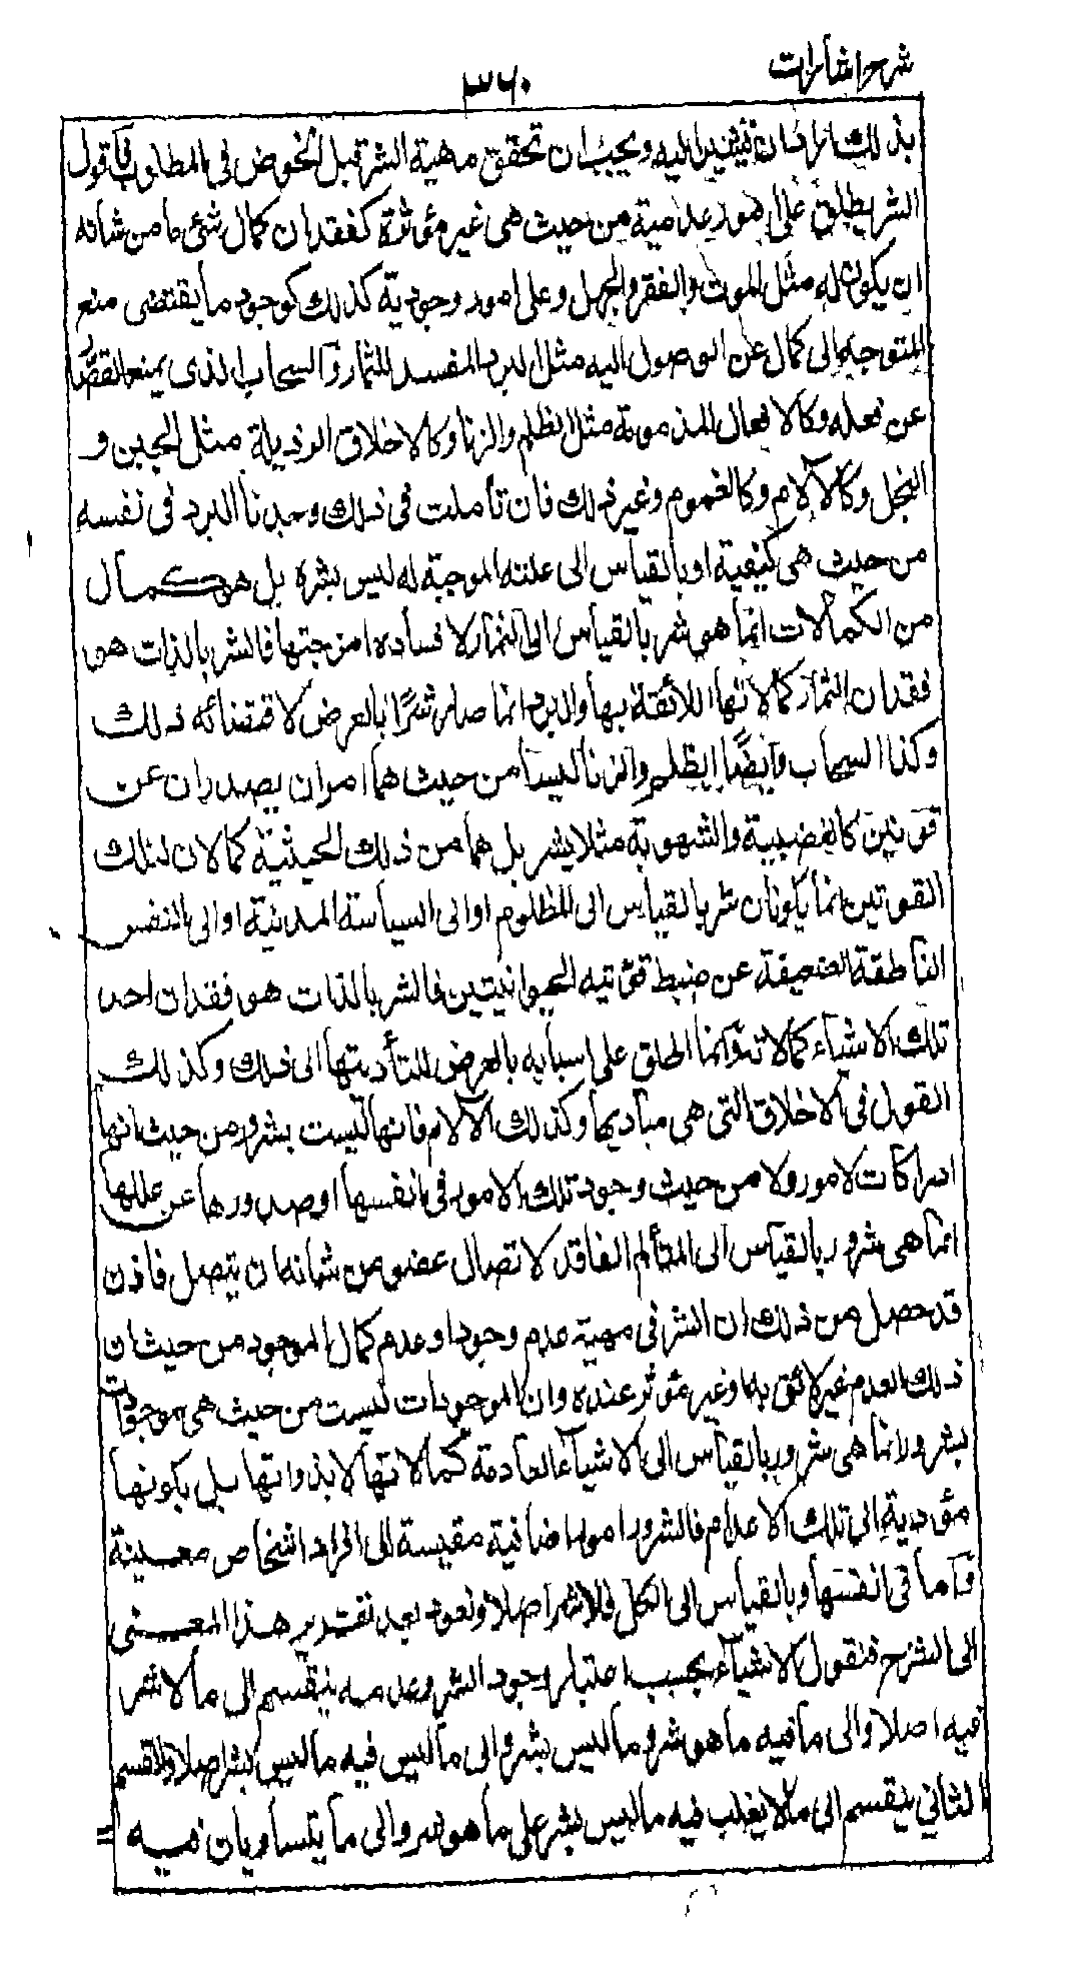 شرح اشارات
۳۶۰
بذلك فان نشير اليه ويجب ان تحقق مهية الشر قبل الخوض فى المطلوب فاقول
الشر يطلق على امور عدمية من حيث هى غير مؤثرة كفقدان كمال شئ ما من شانه
ان يكون له مثل الموت والفقر والجهل وعلى امور وجودية كذلك كوجود ما يقتضى منع
المتوجه الى كمال عن الوصول اليه مثل البرد المفسد للثمار والسحاب الذى يمنع القصار
عن فعله وكالافعال المذمومة مثل الظلم والزنا وكالاخلاق الرذيلة مثل الجبن و
البخل وكالآلام وكالغموم وغير ذلك فان تأملت فى ذلك وجدنا البرد فى نفسه
من حيث هى كيفية او بالقياس الى علته الموجبة له ليس بشر بل هو كمال
من الكمالات انما هو شر بالقياس الى الثمار لافساده امزجتها فالشر بالذات هو
فقدان الثمار كمالاتها اللائقة بها والبرد انما صار شرًا بالعرض لاقتضائه ذلك
وكذا السحاب وايضًا الظلم والزنا ليسا من حيث هما امران يصدران عن
قوتين كالغضبية والشهوية مثلا بشر بل هما من ذلك الحيثية كمالان لتلك
القوتين انما يكونان شر بالقياس الى المظلوم او الى السياسة المدنية او الى النفس
الناطقة الضعيفة عن ضبط قوتيه الحيوانيتين فالشر بالذات هو فقدان احد
تلك الاشياء كمالاته وانما اطلق على اسبابه بالعرض لتأديتها الى ذلك وكذلك
القول فى الاخلاق التى هى مباديها وكذلك الآلام فانها ليست بشرور من حيث انها
ادراكات لامور ولا من حيث وجود تلك الامور فى انفسها او صدورها عن عللها
انما هى شرور بالقياس الى المتألم الفاقد لاتصال عضو من شانه ان يتصل فاذن
قد حصل من ذلك ان الشر فى مهية عدم وجود او عدم كمال لموجود من حيث ان
ذلك العدم غير لائق به او غير مؤثر عنده وان الموجودات ليست من حيث هى موجودات
بشرور انما هى شرور بالقياس الى الاشياء العادمة كمالاتها لا بذواتها بل بكونها
مؤدية الى تلك الاعدام فالشرور امور اضافية مقيسة الى افراد اشخاص معينة
واما فى انفسها وبالقياس الى الكل فلا شر اصلا ونعود بعد تقرير هذا المعنى
الى الشرح فنقول الاشياء بحسب اعتبار وجود الشر وعدمه ينقسم الى ما لا شر
فيه اصلا والى ما فيه ما هو شر وما ليس بشر والى ما ليس فيه ما ليس بشر اصلا والقسم
الثانى ينقسم الى ما لا يغلب فيه ما ليس بشر على ما هو شر والى ما يتساويان فيه